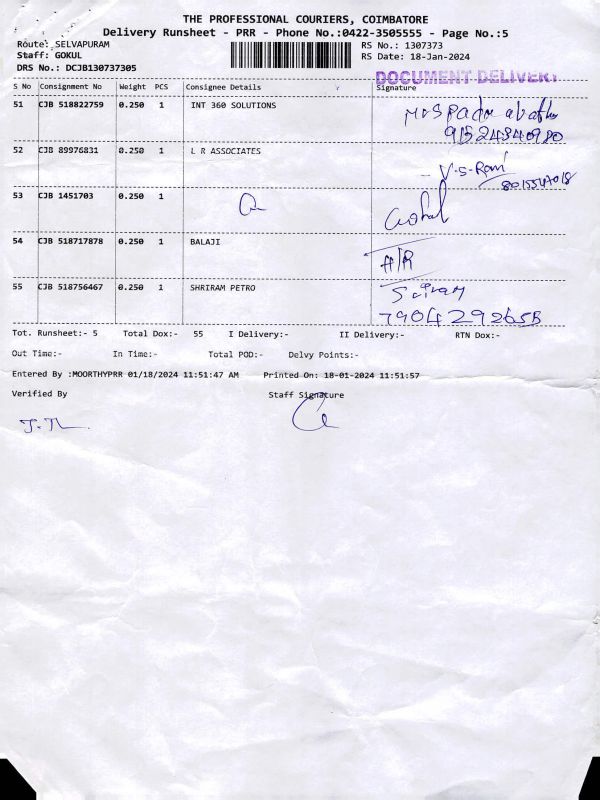 THE PROFESSIONAL COURIERS, COIMBATORE
Delivery Runsheet - PRR - Phone No.:0422-3505555 - Page No.:5
Route: SELVAPURAM RS No.: 1307373
Staff: GOKUL RS Date: 18-Jan-2024
DRS No.: DCJB130737305
DOCUMENT DELIVERY
S No Consignment No Weight PCS Consignee Details Signature
51 CJB 518822759 0.250 1 INT 360 SOLUTIONS
52 CJB 89976831 0.250 1 L R ASSOCIATES V.S. Rani
53 CJB 1451703 0.250 1 Gokul
54 CJB 518717878 0.250 1 BALAJI A/R
55 CJB 518756467 0.250 1 SHRIRAM PETRO Sriram
Tot. Runsheet:- 5 Total Dox:- 55 I Delivery:- II Delivery:- RTN Dox:-
Out Time:- In Time:- Total POD:- Delvy Points:-
Entered By :MOORTHYPRR 01/18/2024 11:51:47 AM Printed On: 18-01-2024 11:51:57
Verified By Staff Signature